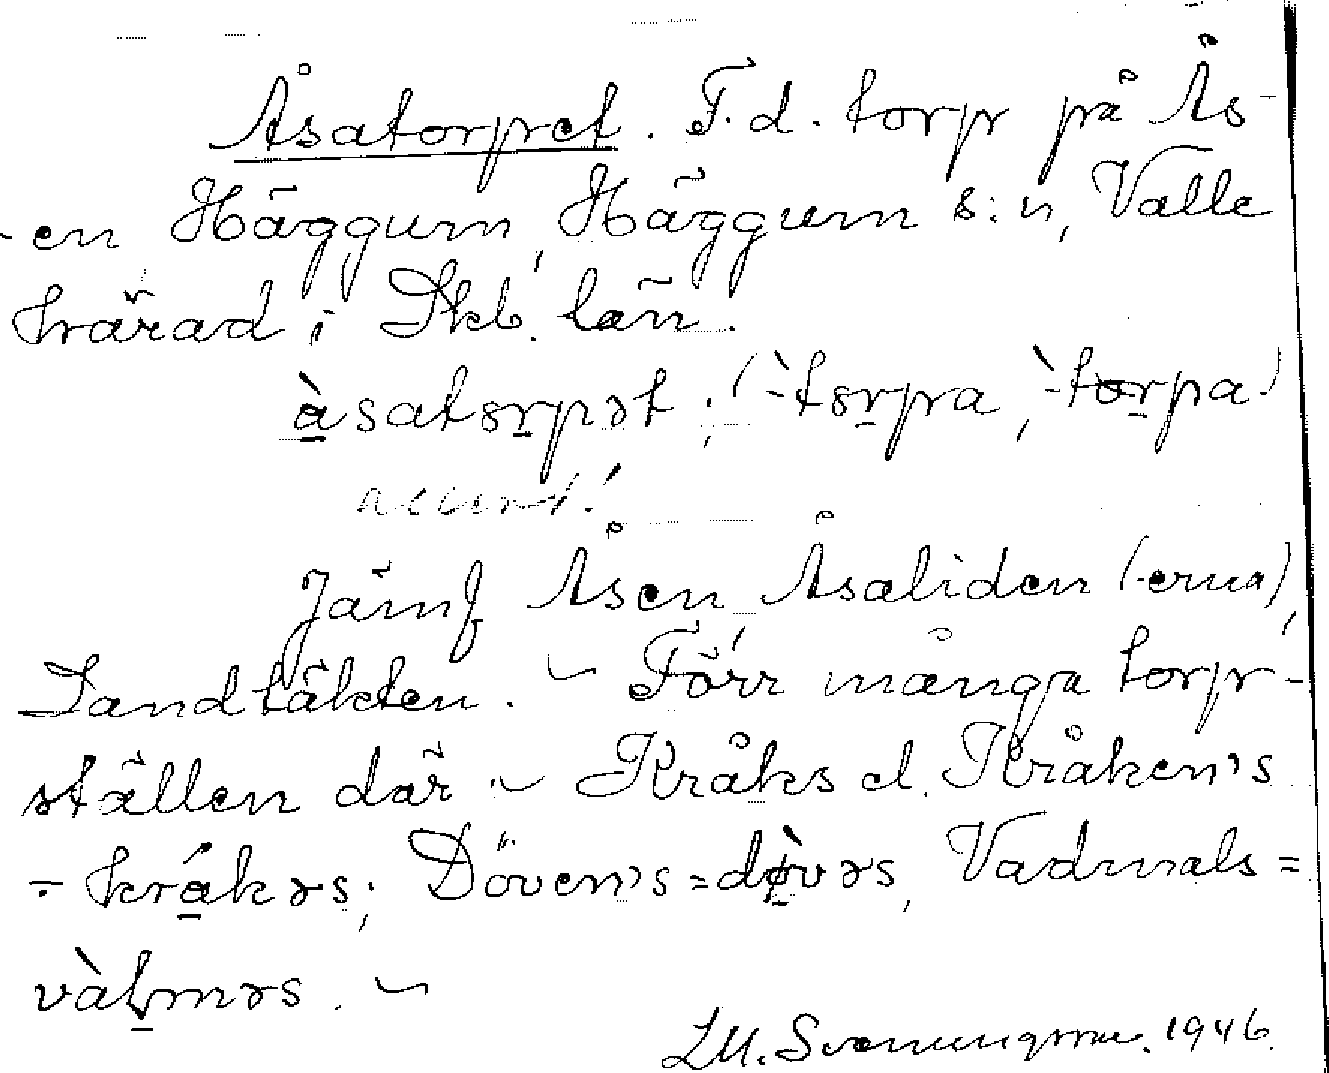 Åsatorpet. F.d. torp på Ås-
-en Häggum, Häggum s:n, Valle
härad i Skb. län.
àsatorpət; (-̀torpa, -̀torpa)
accent!
Jämf Åsen, Åsaliden (-erna),
Sandtäkten. ~ Förr många torp-
ställen där ~ Kråks el. Kråken's
= kråkəs; Döven's = dø̀vəs, Vadmals =
vàlməs. ~
LM. Svenungsson. 1946.